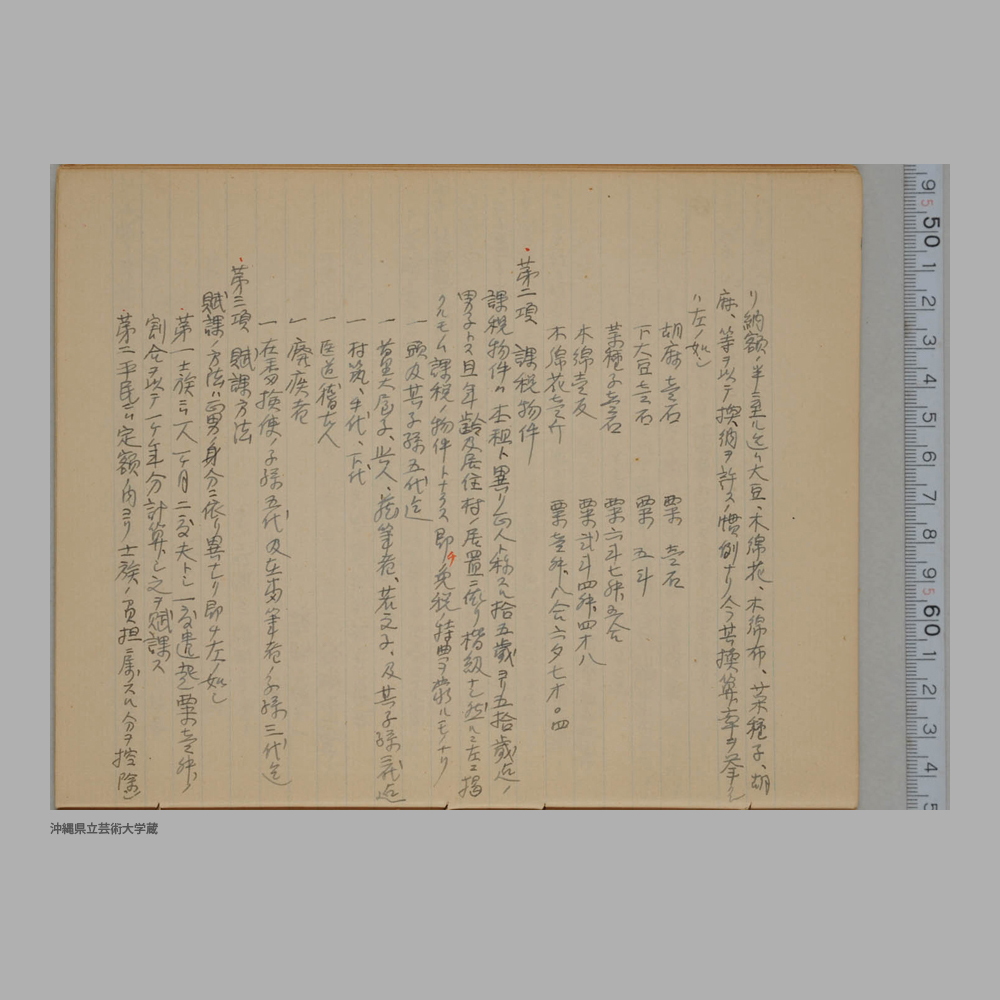 リ納額ノ半ニ至ル迄ハ大豆、木綿花、木綿布、菜種子、胡
麻、等ヲ以テ換納ヲ許スノ慣例ナリ今其換算率ヲ挙クレ
ハ左ノ如シ
胡麻 壱石 粟 壱石
下大豆壱石 粟 五斗
菜種子壱石 粟六斗七升五合
木綿壱反 粟弐斗四升四才八
木綿花壱斤 粟壱升八合六夕七才〇四
第二項 課税物件
課税物件ハ本租ト異リ正人ト称スル拾五歳ヨリ五拾歳迄ノ
男子トス且年齢及居住村ノ居置ニ依リ階級ナシ然ルニ左ニ掲
クルモノハ課税ノ物件トナラス即チ免税ノ特典ヲ蒙ルモノナリ
一 頭及其子孫五代迄
一 首里大屋子、与人、蔵筆者、若文子、及其子孫三代迄
一 村筑、耕代、下代
一 医道稽古人
一 廃疾者
一 在番、検使ノ子孫五代及在番筆者ノ子孫三代迄
第三項 賦課方法
賦課ノ方法ハ正男ノ身分ニ依リ異ナリ即チ左ノ如シ
第一士族ニハ一人一ヶ月二度夫トシ一度遣起粟壱升ノ
割合ヲ以テ一ヶ年分計算シ之ヲ賦課ス
第二平民ニハ定額ノ内ヨリ士族ノ負担ニ属スル分ヲ控除シ
沖縄県立芸術大学蔵
9 50 1 2 3 4 5 6 7 8 9 60 1 2 3 4 5